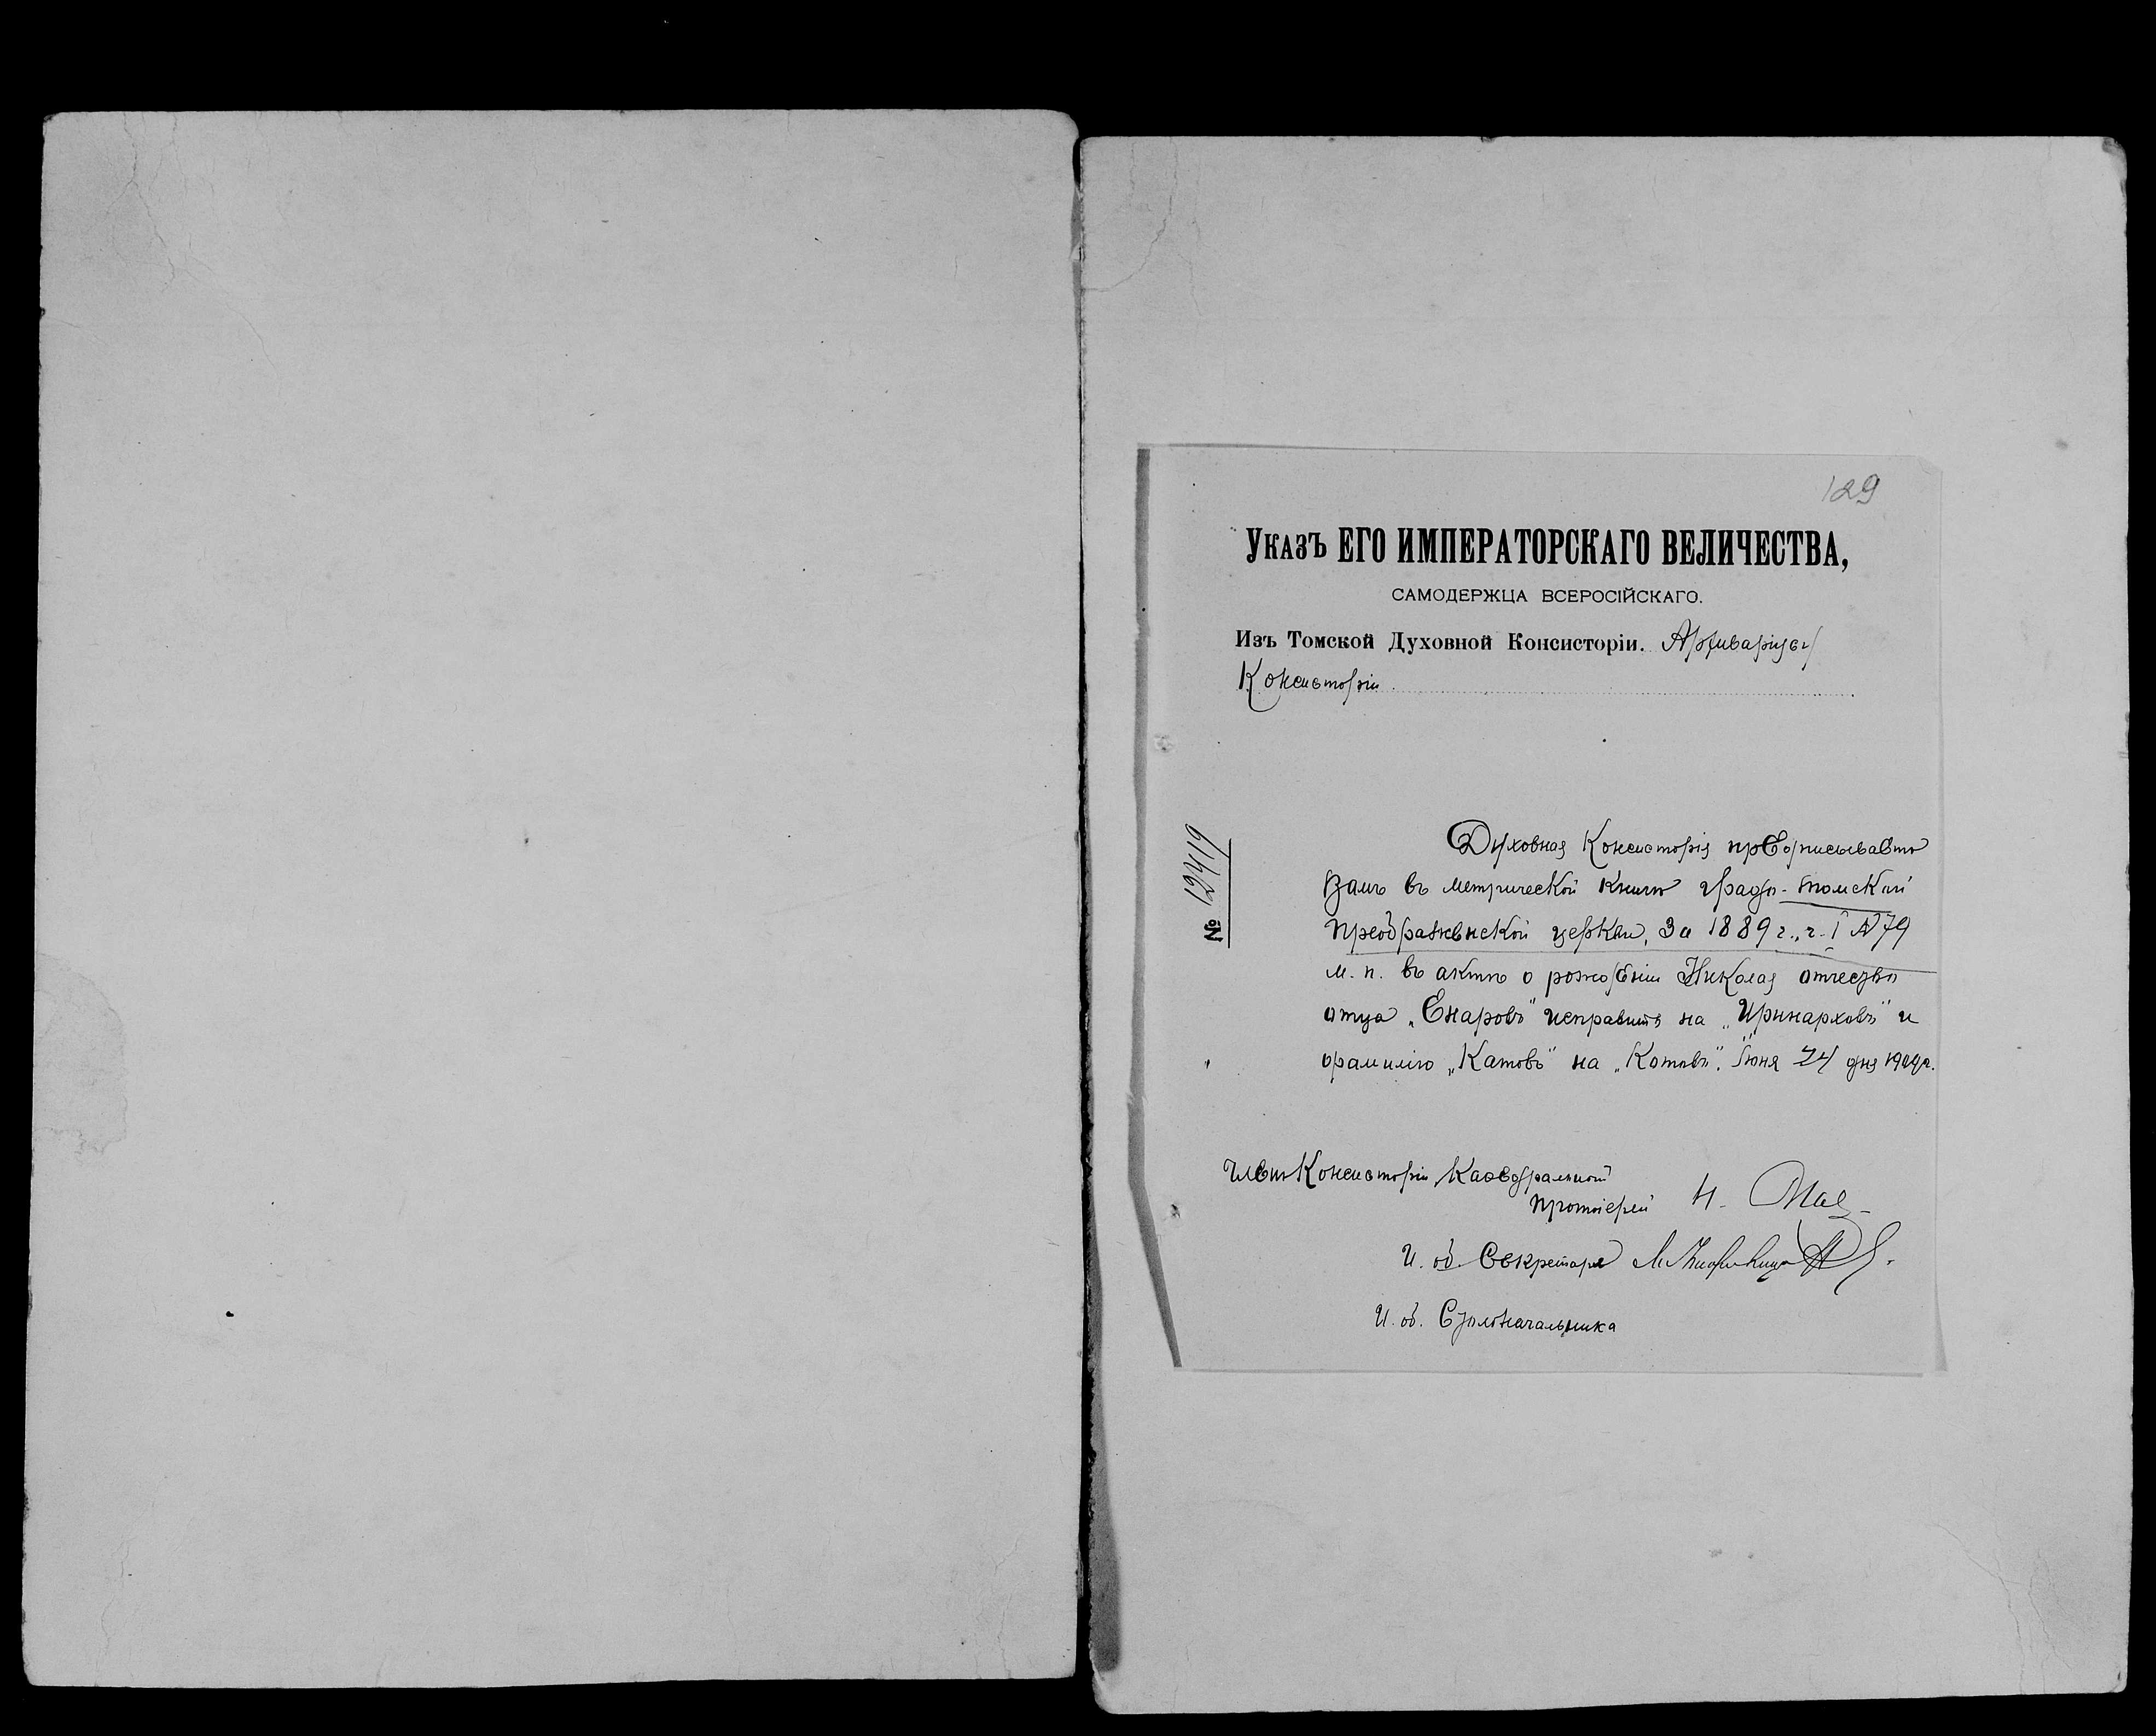 129
Указъ ЕГО ИМПЕРАТОРСКАГО ВЕЛИЧЕСТВА,
САМОДЕРЖЦА ВСЕРОСІЙСКАГО.
Изъ Томской Духовной Консисторіи. Архиваріусу
Консисторіи
№ 12419
Духовная Консисторія предписываетъ
Вамъ въ метрической книгѣ градо-томской
преображенской церкви, за 1889 г., ч. I № 79
м. п. въ актѣ о рожденіи Николая отчество
отца „Енаровъ" исправить на „Иринарховъ" и
фамилію „Катовъ" на „Котовъ". Іюня 24 дня 1909г.
Членъ Консисторіи Каѳедральной
протоіерей Н.
И. об. Секретаря
И. об. Столоначальника